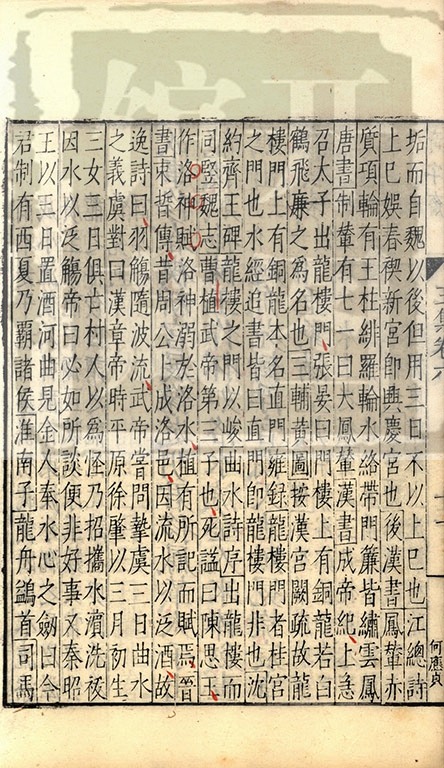 垢而自魏以後但用三日不以上巳也江總詩
上巳娛春禊新宮即興慶宮也後漢書鳳輦亦
質項輪有王杜緋羅輪水絡帶門簾皆繡雲鳳
唐書制輦有七一曰大鳳輦漢書成帝紀上急
召太子出龍樓門張晏曰門樓上有銅龍若白
鶴飛廉之為名也三輔黃圖按漢宮闕疏故龍
樓門上有銅龍本名直門雍錄龍樓門者桂宮
之門也水經追書皆曰直門即龍樓門非也沈
約齊王碑龍樓之門以峻曲水詩序出龍樓而
司豎魏志曹植武帝第三子也死謚曰陳思王
作洛神賦洛神溺於洛水植有所記而賦焉晉
書束晳傳昔周公卜成洛邑因流水以泛酒故
逸詩曰羽觴隨波流武帝嘗問摯虞三日曲水
之義虞對曰漢章帝時平原徐肇以三月初生
三女三日俱亡村人以為怪乃招攜水濵洗祓
因水以泛觴帝曰必如所談便非好事又秦昭
王以三日置酒河曲見金人奉水心之劒曰令
君制有西夏乃霸諸侯淮南子龍舟鷁首司馬
何應貞